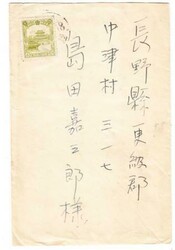 長野縣更級郡
中津村 三一七
島田嘉三郎様